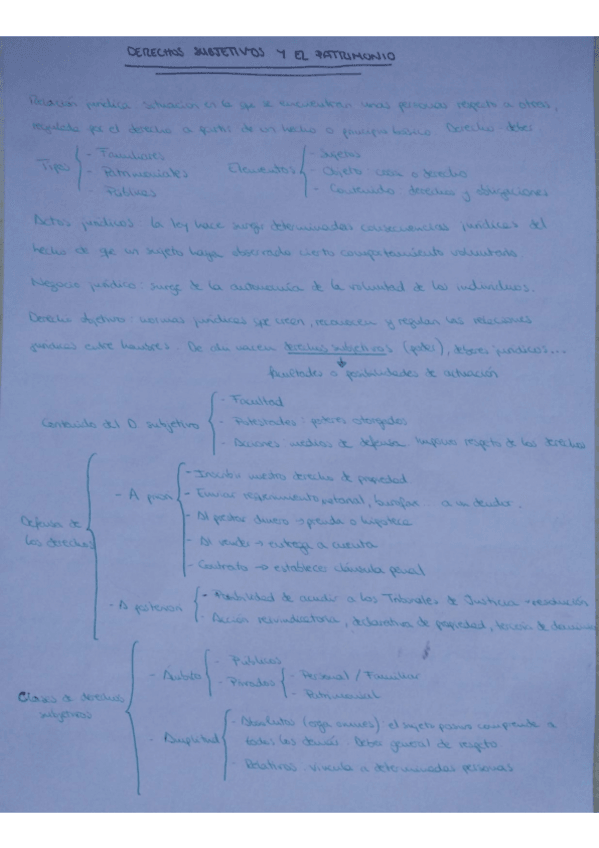 DERECHOS SUBJETIVOS Y EL PATRIMONIO
Relación jurídica situación en la que se encuentran unas personas respecto a otras,
regulada por el derecho a partir de un hecho o principio básico Derecho-deber
Tipos
- Familiares
- Patrimoniales
- Públicas
Elementos
- Sujetos
- Objeto cosa o derecho
- Contenido derechos y obligaciones
Actos jurídicos la ley hace surgir determinadas consecuencias jurídicas del
hecho de que un sujeto haya observado cierto comportamiento voluntario
Negocio jurídico: surge de la autonomía de la voluntad de los individuos.
Derecho objetivo: normas jurídicas que crean, reconocen y regulan las relaciones
jurídicas entre hombres. De ahí nacen derechos subjetivos (poder), deberes jurídicos...
↓
facultades o posibilidades de actuación
Contenido del D. subjetivo
- Facultad
- Potestades: poderes otorgados
- Acciones medios de defensa respeto de los derechos
Defensa de
los derechos
- A priori
- Inscribir nuestro derecho de propiedad
- Enviar requerimiento notarial, burofax... a un deudor.
- Al prestar dinero → prenda o hipoteca
- Al vender → entrega a cuenta
- Contrato → establecer cláusula penal
- A posteriori
- Posibilidad de acudir a los Tribunales de Justicia → resolución
- Acción reivindicatoria, declarativa de propiedad, tercería de dominio
Clases de derechos
subjetivos
- Ámbito
- Públicos
- Privados
- Personal / Familiar
- Patrimonial
- Amplitud
- Absolutos (erga omnes) el sujeto pasivo comprende a
todos los demás. Deber general de respeto
- Relativos. vincula a determinadas personas